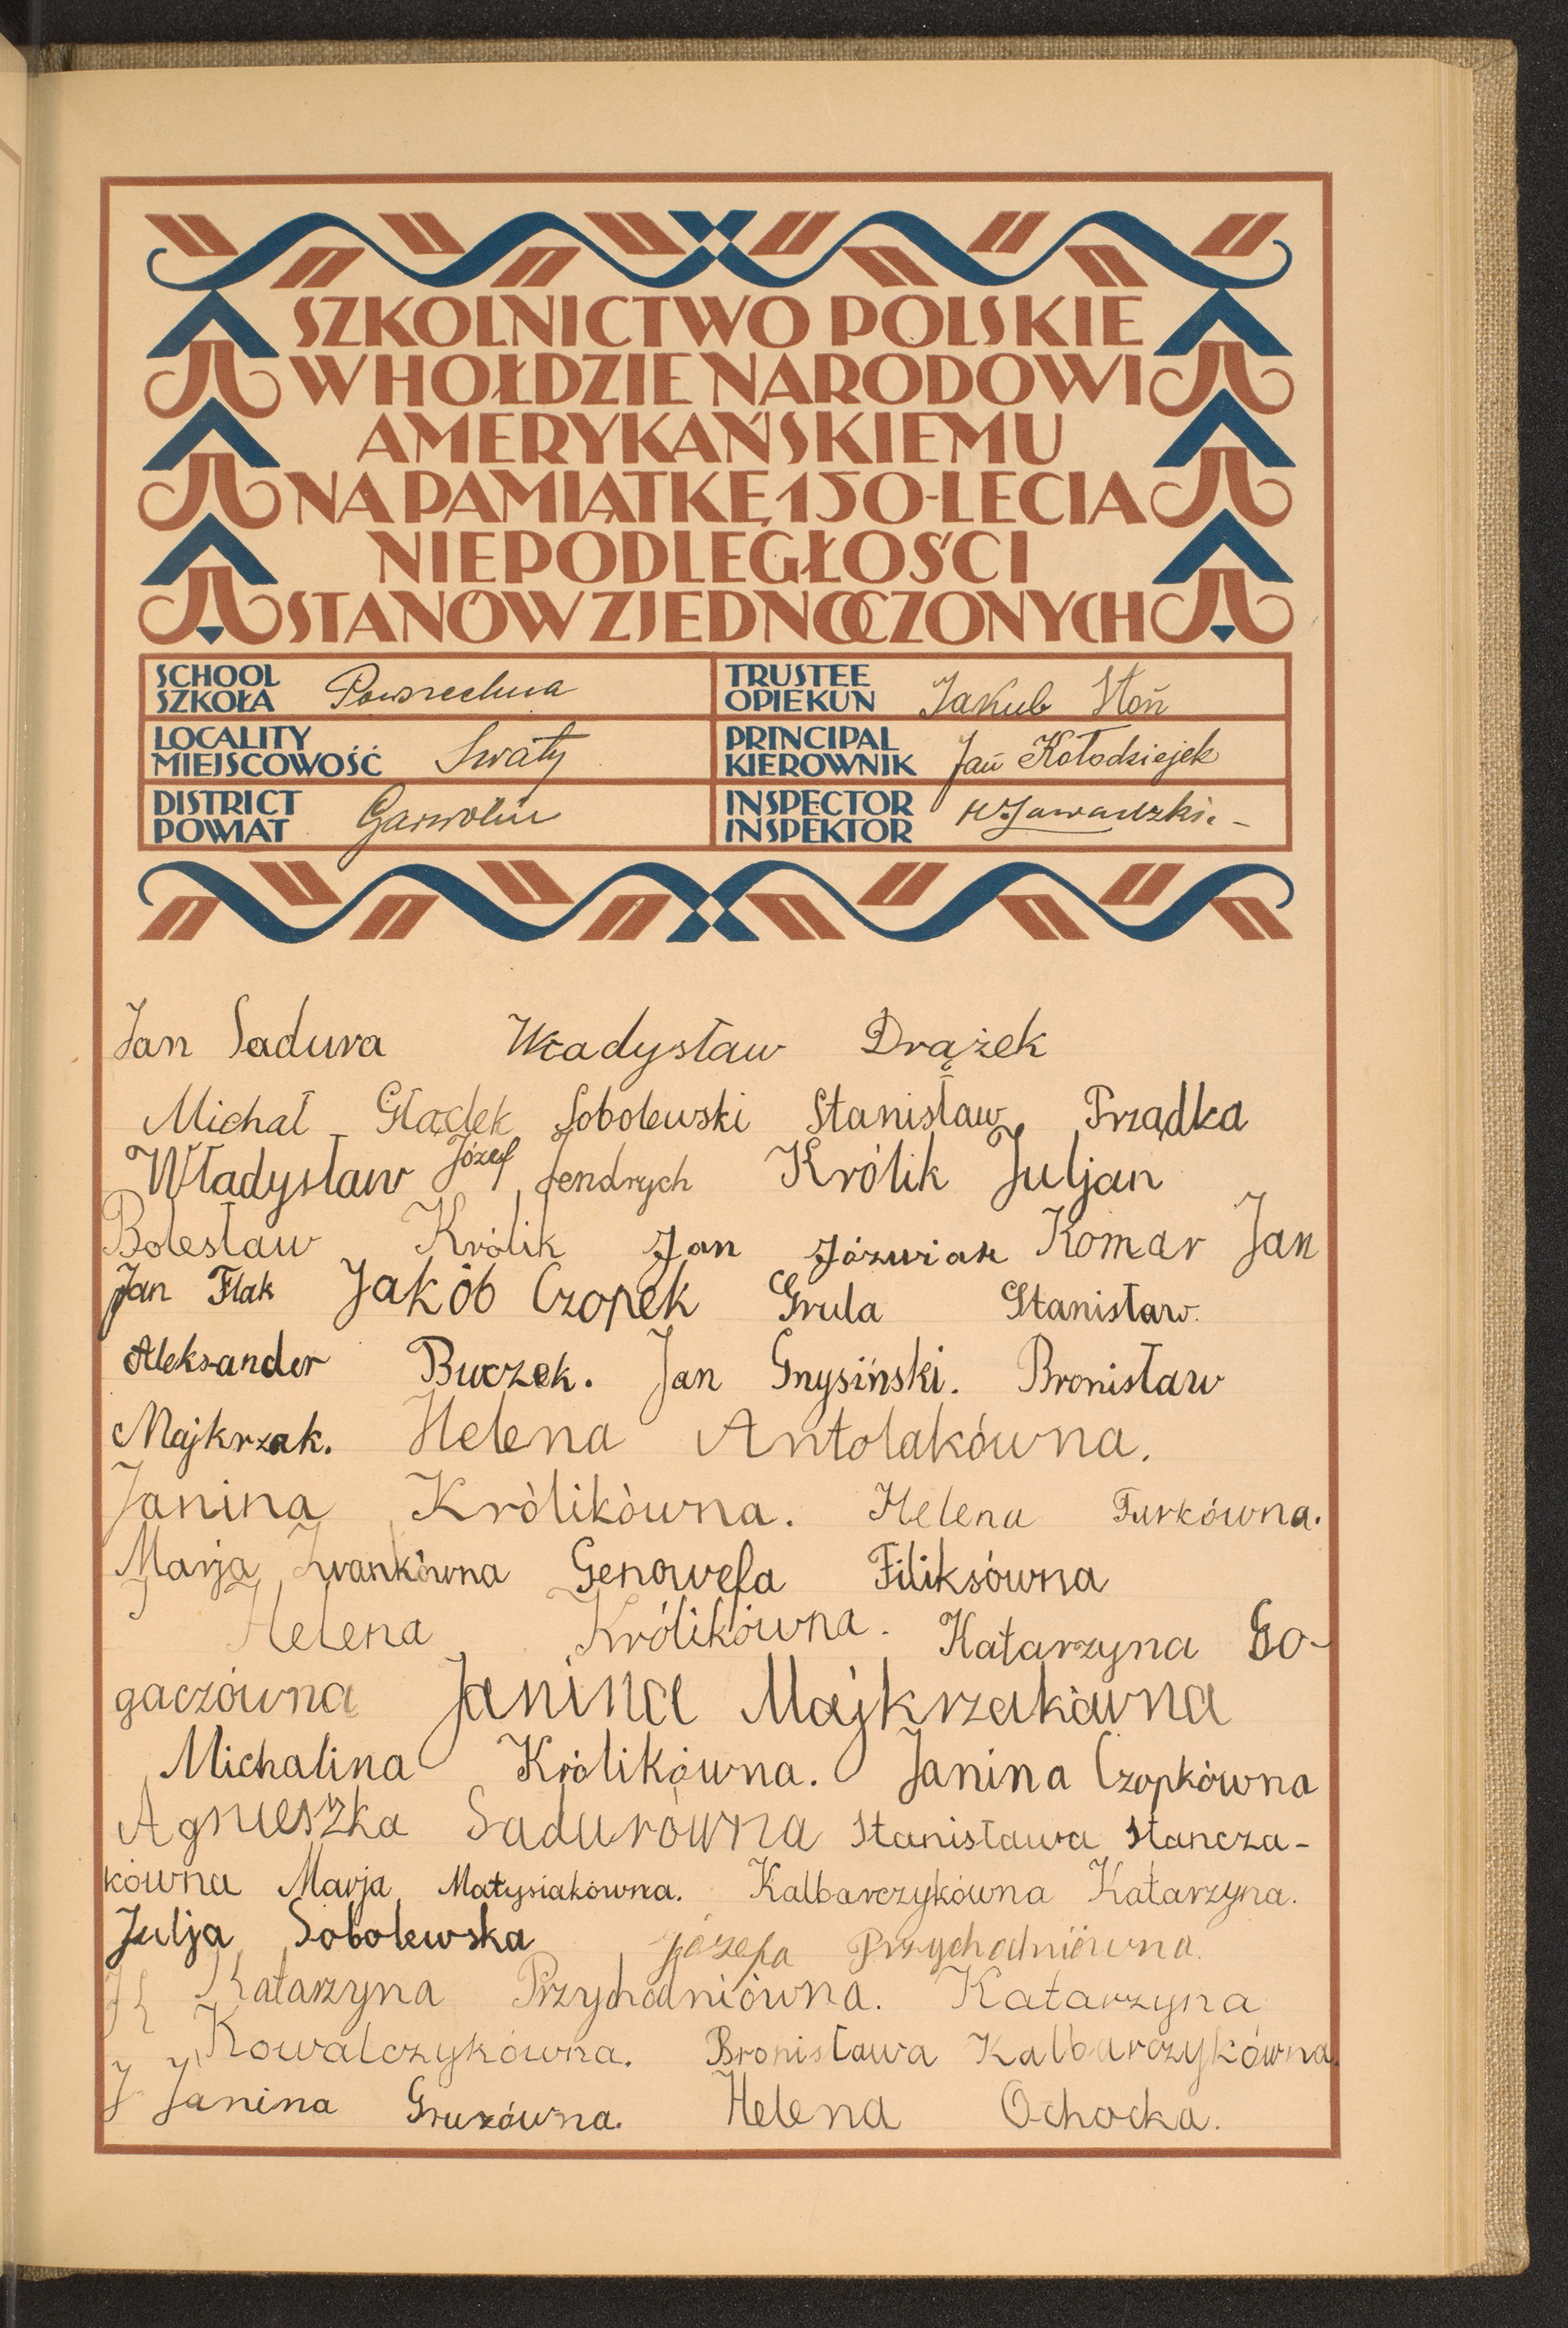 SZKOLNICTWO POLSKIE
W HOŁDZIE NARODOWI
AMERYKAŃSKIEMU
NA PAMIĄTKĘ 150-LECIA
NIEPODLEGŁOŚCI
STANÓW ZJEDNOCZONYCH
SCHOOL
SZKOŁA Powszechna
TRUSTEE
OPIEKUN Jakub Słoń
LOCALITY
MIEJSCOWOŚĆ Swaty
PRINCIPAL
KIEROWNIK Jan Kołodziejek
DISTRICT
POWIAT Garwolin
INSPECTOR
INSPEKTOR W. Zawadzki. -
Jan Sadura Władysław Drążek
Michał Głądek Sobolewski Stanisław Prządka
Władysław Józef Jendrych Królik Juljan
Bolesław Królik Jan Jóżwiak Komar Jan
Jan Flak Jakób Czopek Grula Stanisław.
Aleksander Buczek. Jan Gnysiński. Bronisław
Majkrzak. Helena Antolakówna.
Janina Królikówna. Helena Turkówna.
Marja Iwankówna Genowefa Filiksówna
Helena Królikówna. Katarzyna Go-
gaczówna Janina Majkrzakówna
Michalina Królikówna. Janina Czopkówna
Agnieszka Sadurówna Stanisława Stancza-
kówna Marja Matysiakówna. Kalbarczykówna Katarzyna.
Julja Sobolewska Józefa Przychodniówna.
Katarzyna Przychodniówna. Katarzyna
Kowalczykówna. Bronisława Kalbarczykówna.
J Janina Gruzówna. Helena Ochocka.